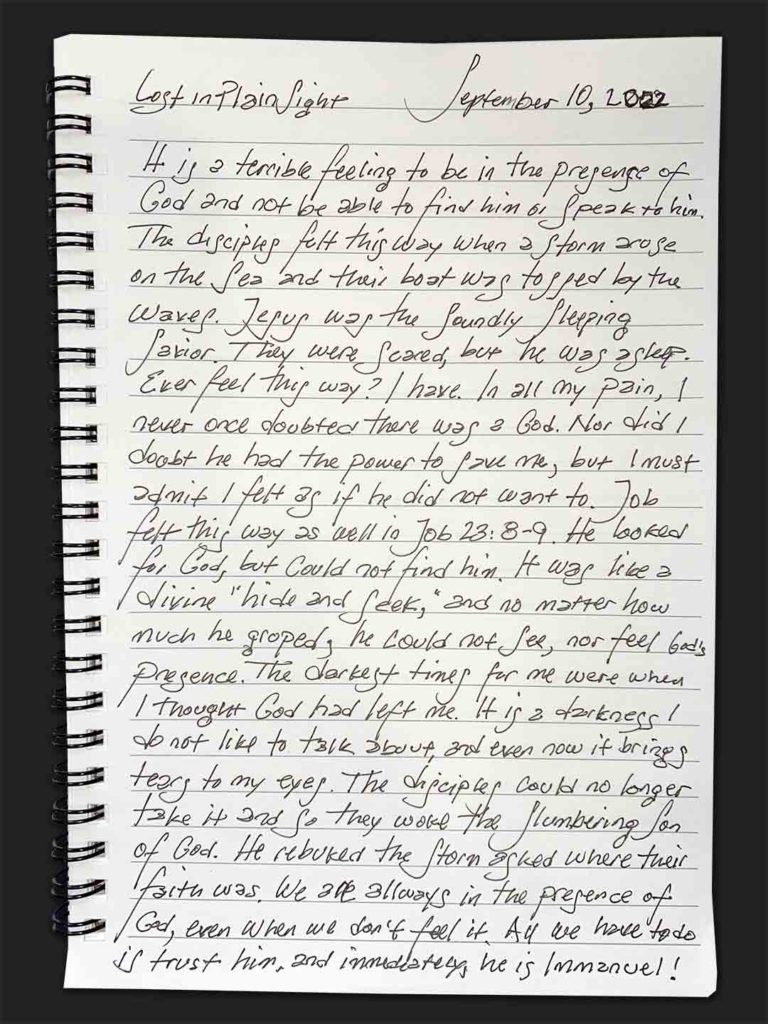 Lost in Plain Sight September 10, 2022
It is a terrible feeling to be in the presense of
God and not be able to find him or speak to him.
The disciples felt this way when a storm arose
on the Sea and their boat was tossed by the
waves. Jesus was the soundly sleeping
Savior. They were scared, but he was asleep.
Ever feel this way? I have. In all my pain, I
never once doubted there was a God. Nor did I
doubt he had the power to save me, but I must
admit I felt as if he did not want to. Job
felt this way as well in Job 23:8-9. He looked
for God, but could not find him. It was like a
divine "hide and seek," and no matter how
much he groped, he could not see, nor feel God's
presence. The darkest times for me were when
I thought God had left me. It is a darkness I
do not like to talk about, and even now it brings
tears to my eyes. The disciples could no longer
take it and so they woke the slumbering Son
of God. He rebuked the storm asked where their
faith was. We are allways in the presence of
God, even when we don't feel it. All we have to do
is trust him, and immediately, he is Immanuel!